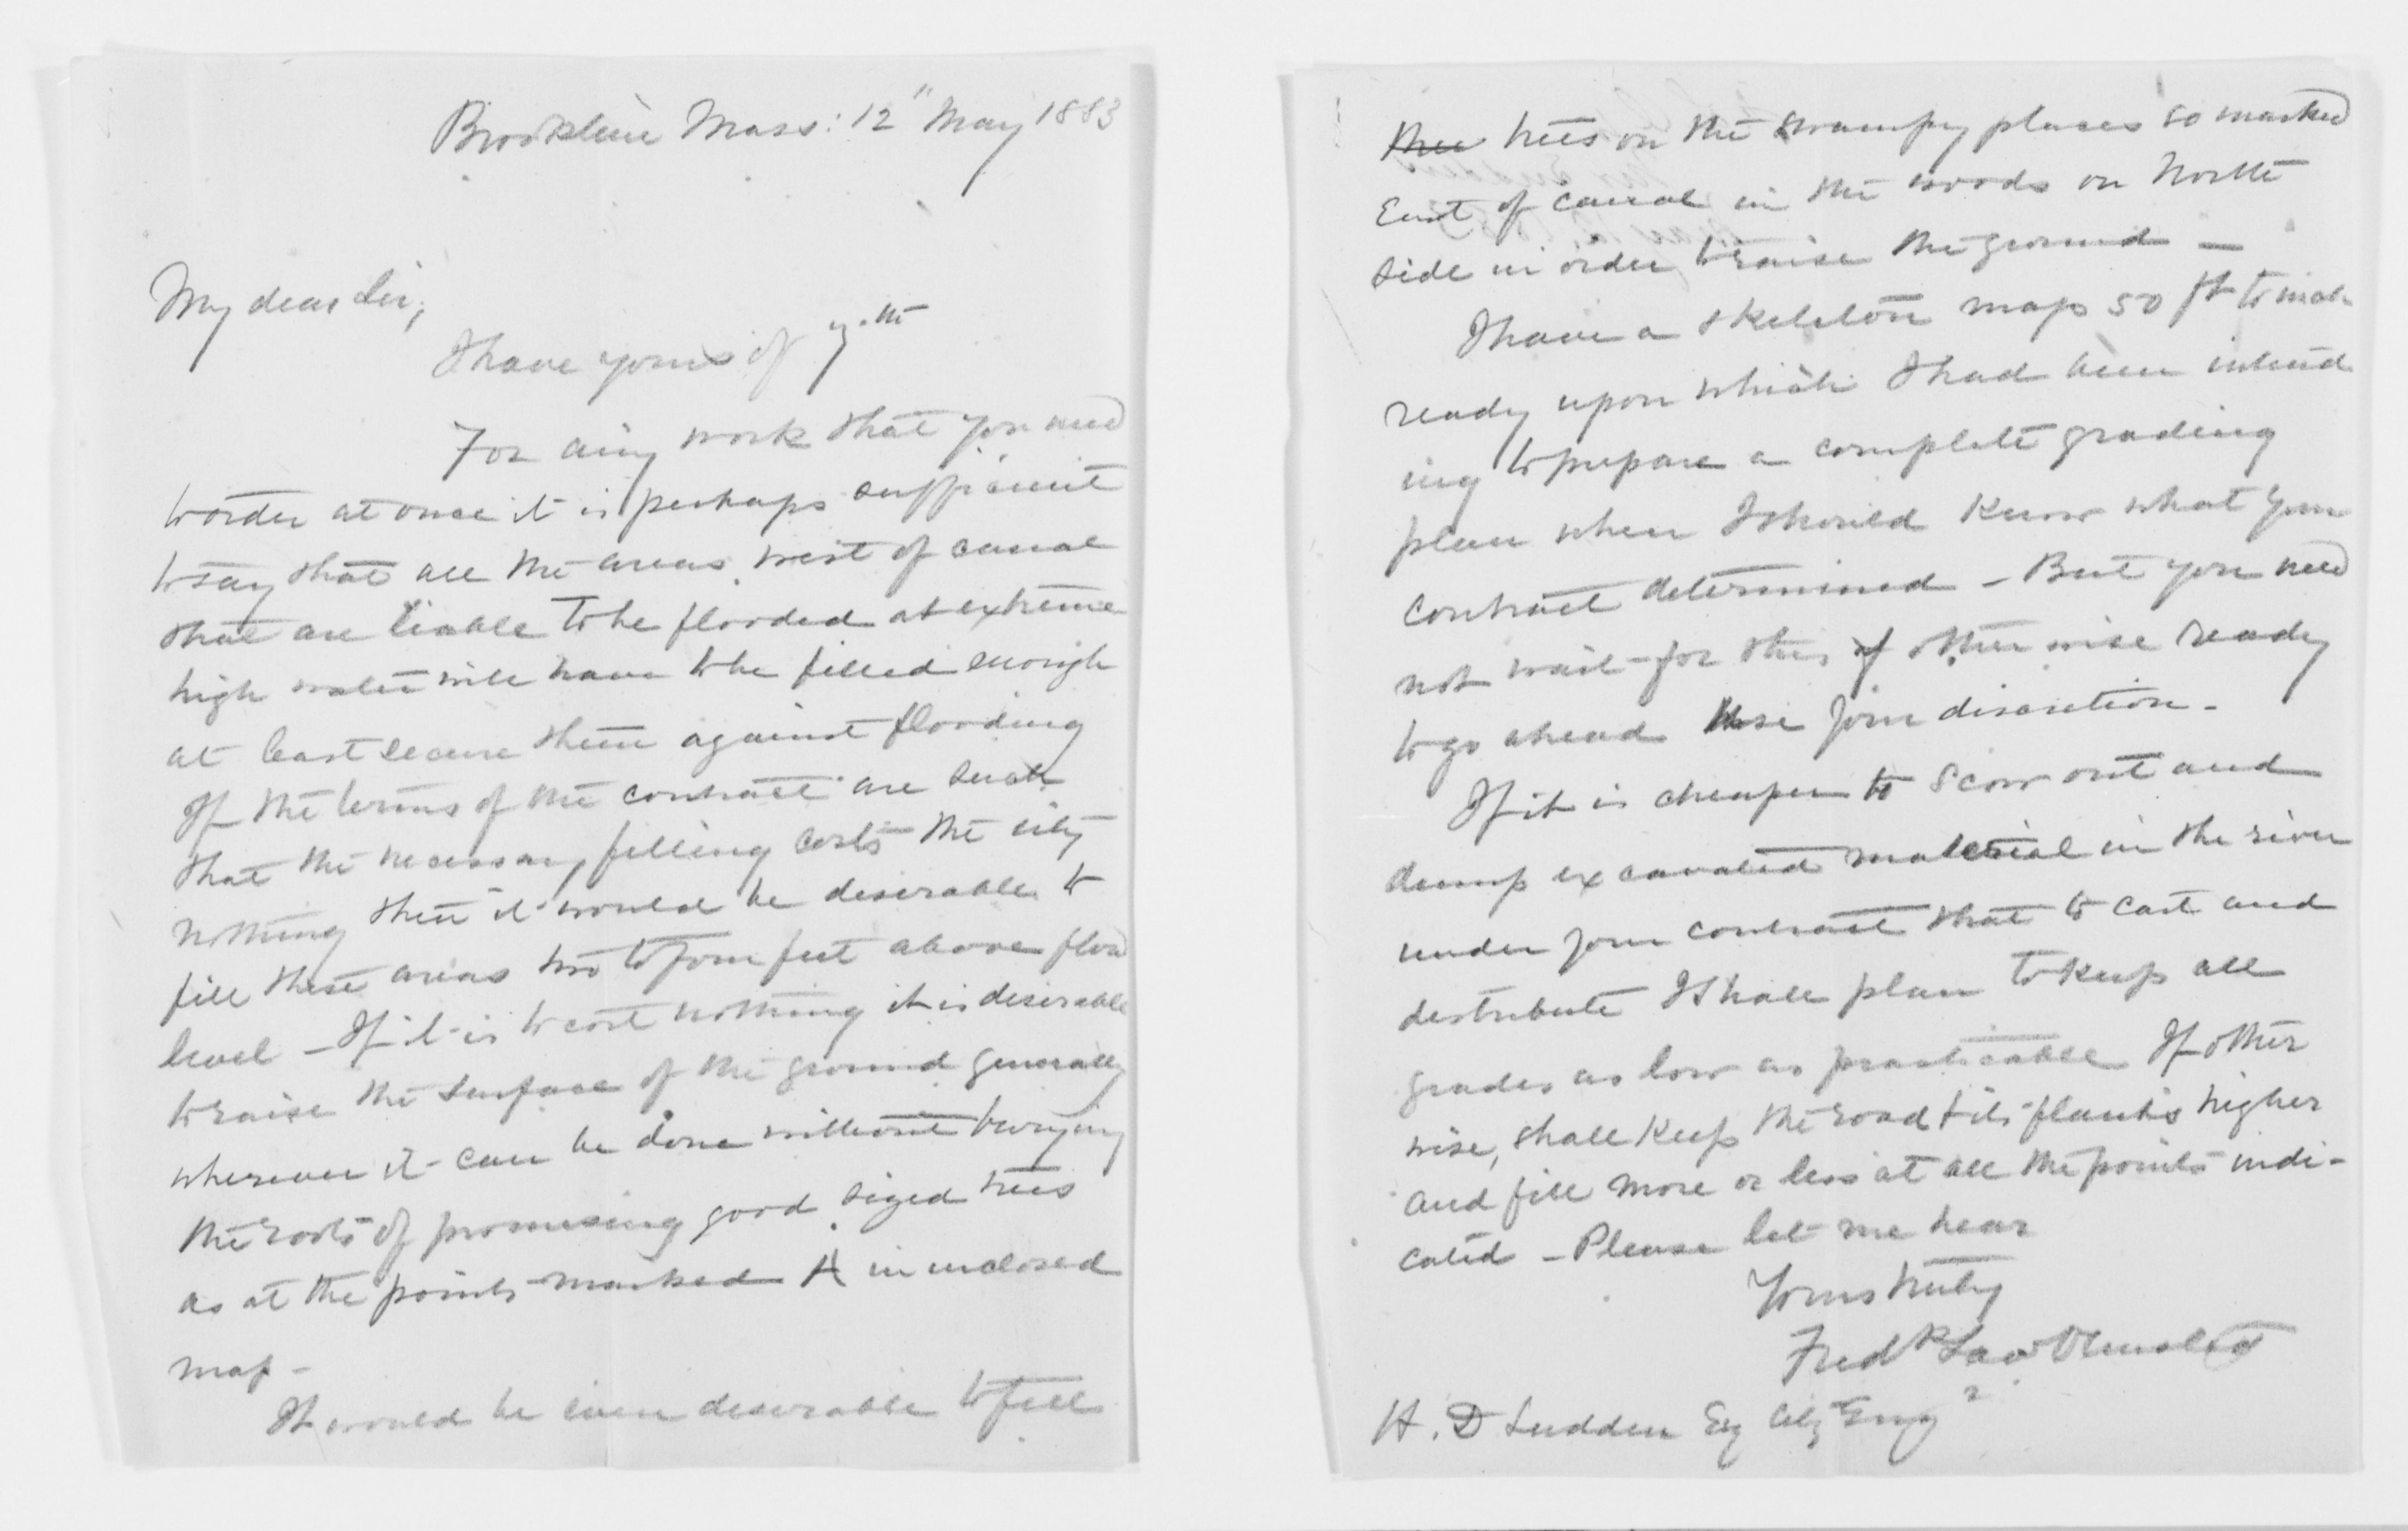 Brookline Mass: 12" May 1883
My dear Sir,
I have yours of 9.th
For any work that you need
to order at once it is perhaps sufficient
to say that all the areas west of canal
that are liable to be flooded at extreme
high water will have to be filled enough
at least secure them against flooding
If the terms of the contract are such
that the necessary filling costs the city
nothing then it would be desirable to
fill these areas two to four feet above flood
level - If it is to cost nothing it is desirable
to raise the surface of the ground generally
wherever it can be done without burying
the roots of promising good sized trees
as at the points marked A in inclosed
map -
It would be even desirable to fill
trees on the swampy places so marked
East of canal in the woods on North
side in order to raise the ground -
I have a skeleton map 50 ft to inch
ready upon which I had been intend
ing to prepare a complete grading
plan when I should know what your
contract determined - But you need
not wait for this if otherwise ready
to go ahead use your discretion -
If it is cheaper to scow out and
dump excavated material in the river
under your contract that to cart and
distribute I shall plan to keep all
grades as low as practicable If other
wise, shall keep the road & its planks higher
and fill more or less at all the points indi-
cated - Please let me hear
Yours truly
Fredk Law Olmsted
H. D Ludden Esq City Engr